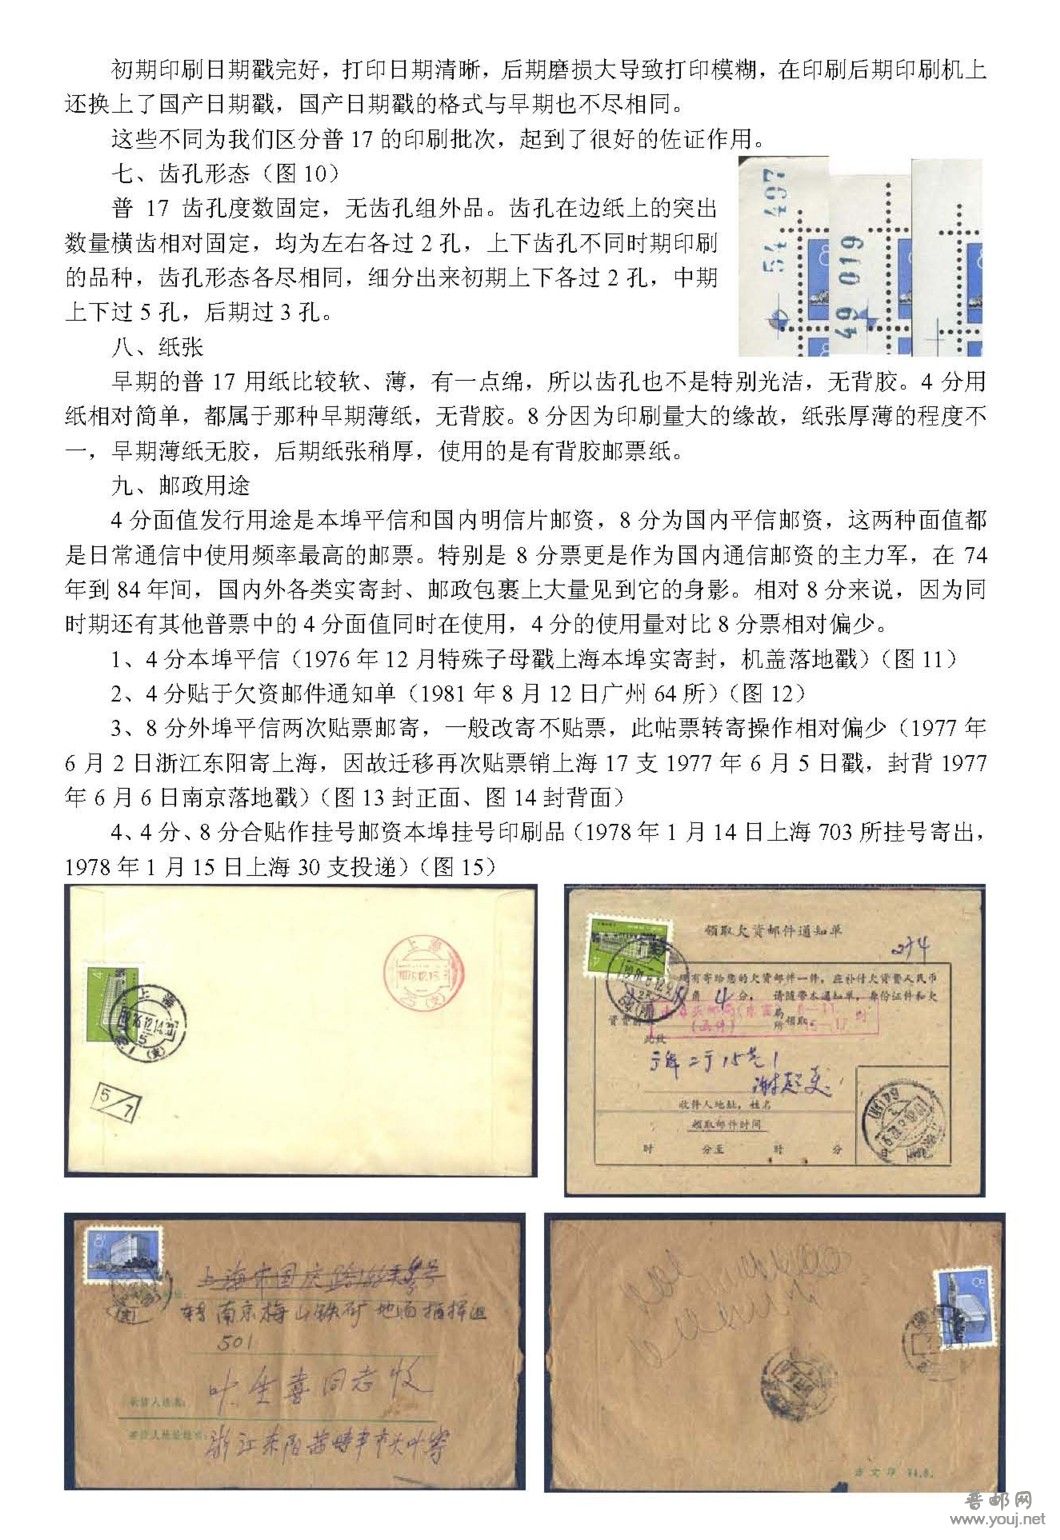 初期印刷日期戳完好，打印日期清晰，后期磨损大导致打印模糊，在印刷后期印刷机上
还换上了国产日期戳，国产日期戳的格式与早期也不尽相同。
这些不同为我们区分普 17 的印刷批次，起到了很好的佐证作用。
七、齿孔形态（图 10）
普 17 齿孔度数固定，无齿孔组外品。齿孔在边纸上的突出
数量横齿相对固定，均为左右各过 2 孔，上下齿孔不同时期印刷
的品种，齿孔形态各尽相同，细分出来初期上下各过 2 孔，中期
上下过 5 孔，后期过 3 孔。
54 497
49 019
八、纸张
早期的普 17 用纸比较软、薄，有一点绵，所以齿孔也不是特别光洁，无背胶。4 分用
纸相对简单，都属于那种早期薄纸，无背胶。8 分因为印刷量大的缘故，纸张厚薄的程度不
一，早期薄纸无胶，后期纸张稍厚，使用的是有背胶邮票纸。
九、邮政用途
4 分面值发行用途是本埠平信和国内明信片邮资，8 分为国内平信邮资，这两种面值都
是日常通信中使用频率最高的邮票。特别是 8 分票更是作为国内通信邮资的主力军，在 74
年到 84 年间，国内外各类实寄封、邮政包裹上大量见到它的身影。相对 8 分来说，因为同
时期还有其他普票中的 4 分面值同时在使用，4 分的使用量对比 8 分票相对偏少。
1、4 分本埠平信（1976 年 12 月特殊子母戳上海本埠实寄封，机盖落地戳）（图 11）
2、4 分贴于欠资邮件通知单（1981 年 8 月 12 日广州 64 所）（图 12）
3、8 分外埠平信两次贴票邮寄，一般改寄不贴票，此帖票转寄操作相对偏少（1977 年
6 月 2 日浙江东阳寄上海，因故迁移再次贴票销上海 17 支 1977 年 6 月 5 日戳，封背 1977
年 6 月 6 日南京落地戳）（图 13 封正面、图 14 封背面）
4、4 分、8 分合贴作挂号邮资本埠挂号印刷品（1978 年 1 月 14 日上海 703 所挂号寄出，
1978 年 1 月 15 日上海 30 支投递）（图 15）
上海
5/7
領取欠资邮件通知单
现有寄给您的欠资邮件一件，应补付欠资费人民币
角 4 分， 请随带本通知单，身份证件和欠
资费
局
所 领取
此致
收件人地址，姓名
领取邮件时间
时 分至 时 分
转 南京梅山铁矿地面指挥组
501
叶生喜同志收
晋邮网
www.youj.net